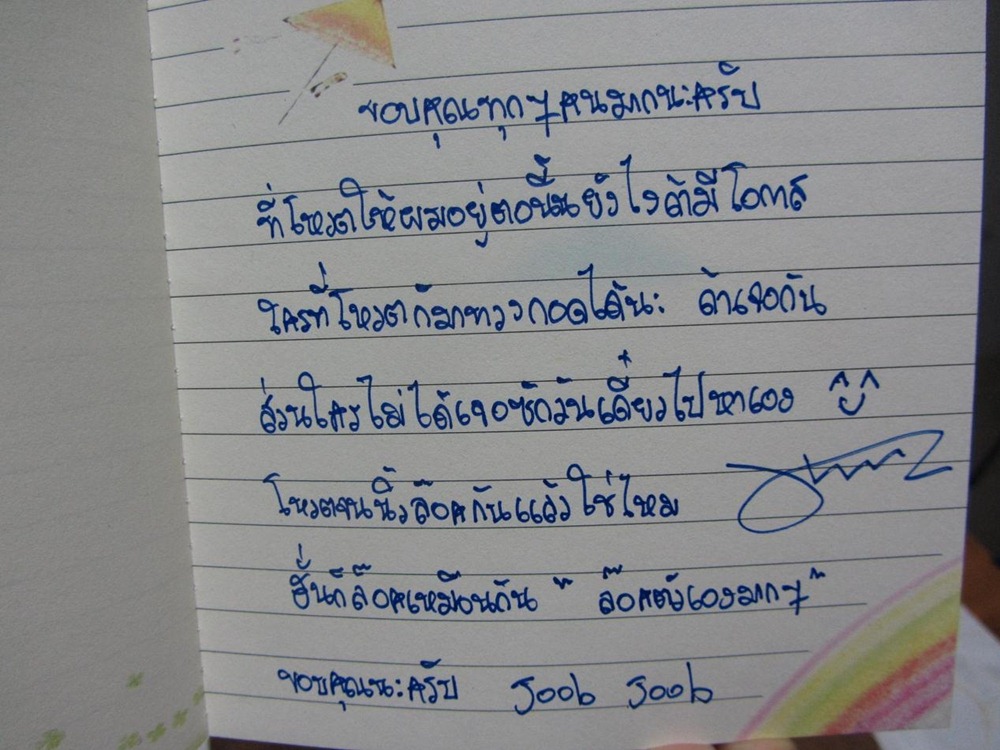 ขอบคุณทุกๆคนมากนะครับ
ที่โหวตให้ผมอยู่ตอนนี้นยังไงถ้ามีโอกาส
ใครที่โหวตก็มาทวงกอดได้นะ ถ้าเจอกัน
ส่วนใครไม่ได้เจอซักวันเดี๋ยวไปหาเอง ^‿^
โหวตจนนิ้วล๊อคกันแล้วใช่ไหม
ฮั่นก็ล๊อคเหมือนกัน " ล๊อคตัวเองมากๆ"
ขอบคุณนะครับ Joob Joob